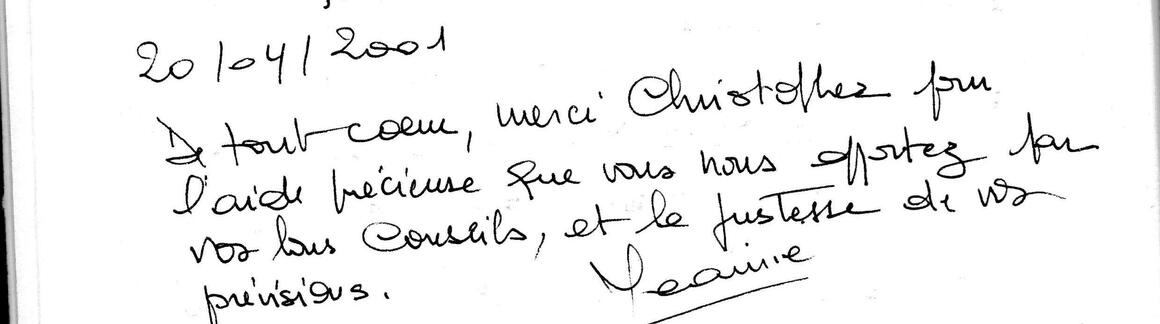 20/04/2001
De tout coeur, merci Christophe pour
l'aide précieuse que vous nous apportez par
vos bons Conseils, et la justesse de vos
prévisions.
Jeannie